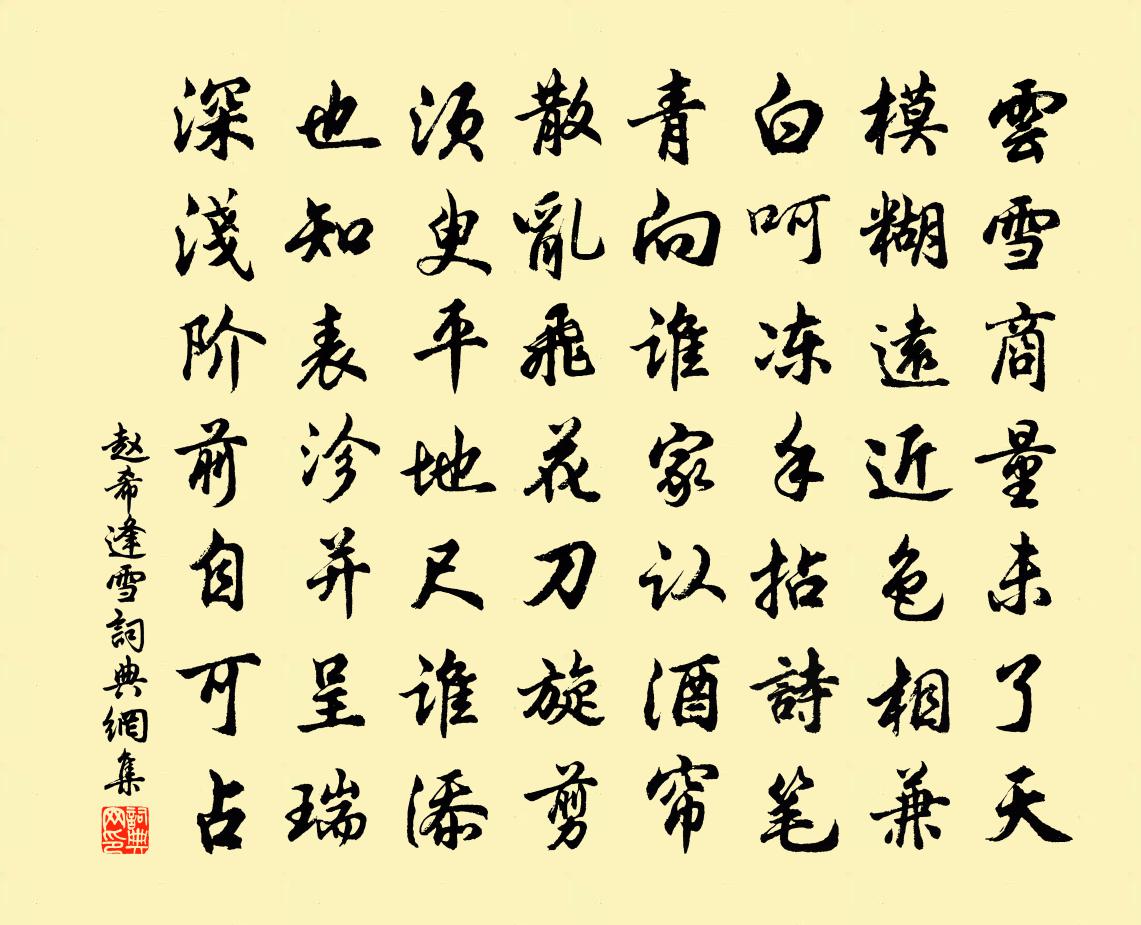 雲雪商量未了天
模糊遠近色相兼
白呵冻手拈詩笔
青向谁家认酒帘
散亂飛花刀旋剪
须臾平地尺谁添
也知表沴并呈瑞
深淺阶前自可占
赵希逢雪詞典網集
詞典网印